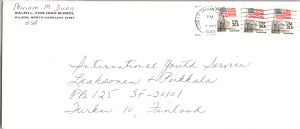 Miriam M. Dunn
RALPH L. FIKE HIGH SCHOOL
WILSON, NORTH CAROLINA 27893
USA
PM
1985
International Youth Service
Laaksonen & Pukkala
PB 125 SF-20101
Turku 10, Finland